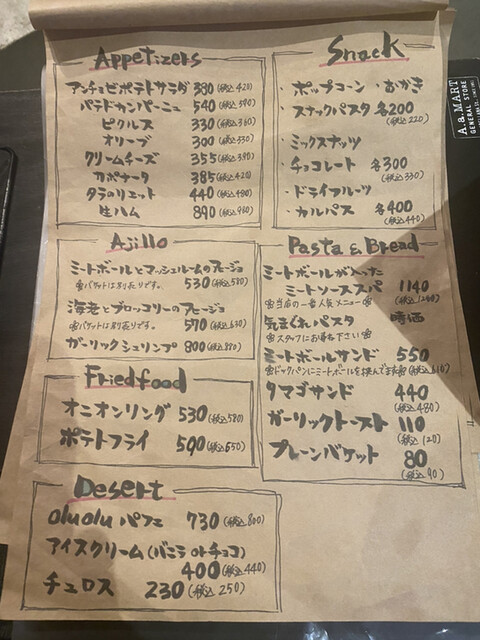 Appetizers
アンチョビポテトサラダ 380(税込420)
パテドカンパーニュ 540(税込590)
ピクルス 330(税込360)
オリーブ 300(税込330)
クリームチーズ 355(税込390)
カポナータ 385(税込420)
タラのリエット 440(税込480)
生ハム 890(税込960)
Snack
・ポップコーン ・おかき
・スナックパスタ 各200
(税込220)
・ミックスナッツ
・チョコレート 各300
(税込330)
・ドライフルーツ
・カルパス 各400
(税込440)
A.a.MART
GENERAL STORE
Ajillo
ミートボールとマッシュルームのアヒージョ
※バケットは別売りです。 530(税込580)
海老とブロッコリーのアヒージョ
※バケットは別売りです。 570(税込630)
ガーリックシュリンプ 800(税込880)
Pasta & Bread
ミートボールが入った
ミートソーススパ 1140
※当店の一番人気メニュー※
気まぐれパスタ 時価
※スタッフにお尋ね下さい※
ミートボールサンド 550
※ドックパンにミートボールを挟んでます※(税込610)
タマゴサンド 440
(税込480)
ガーリックトースト 110
(税込120)
プレーンバケット 80
(税込90)
Friedfood
オニオンリング 530(税込580)
ポテトフライ 590(税込650)
Desert
oluolu パフェ 730(税込800)
アイスクリーム(バニラ orチョコ)
400(税込440)
チュロス 230(税込250)